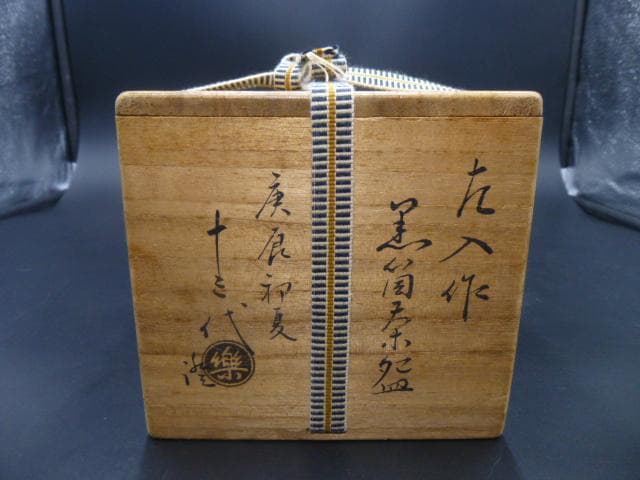 左入作
黒筒茶碗
庚辰初夏
十三代
樂
證